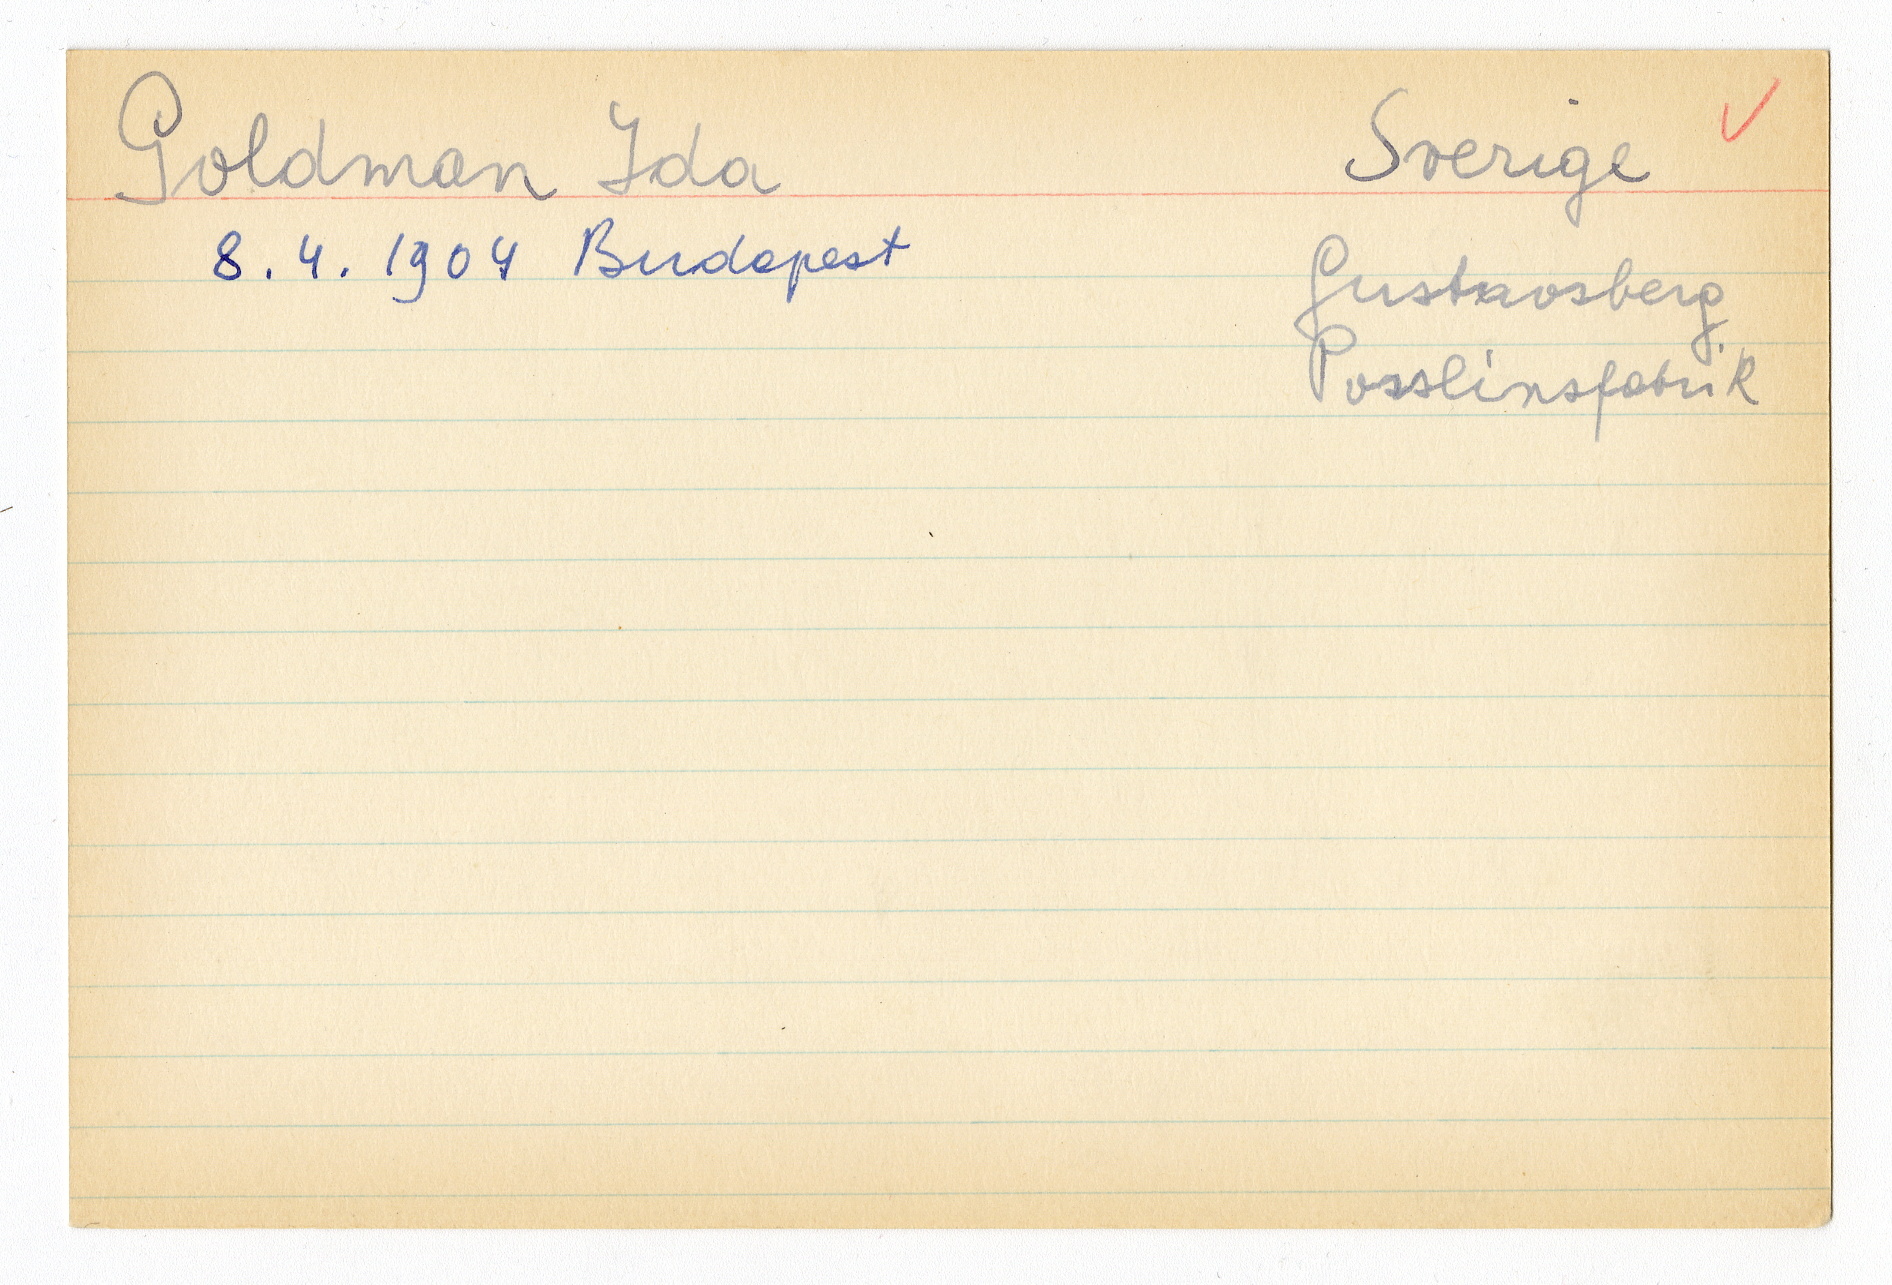 Goldman Ida
Sverige ✓
8.4.1904 Budapest
Gustavsberg.
Posslinsfabrik